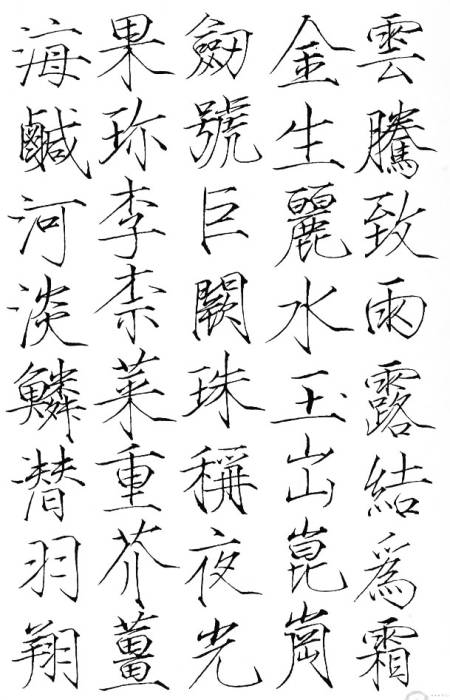 雲騰致雨露結爲霜
金生麗水玉出崑崗
劒號巨闕珠稱夜光
果珎李柰菜重芥薑
海鹹河淡鱗潛羽翔